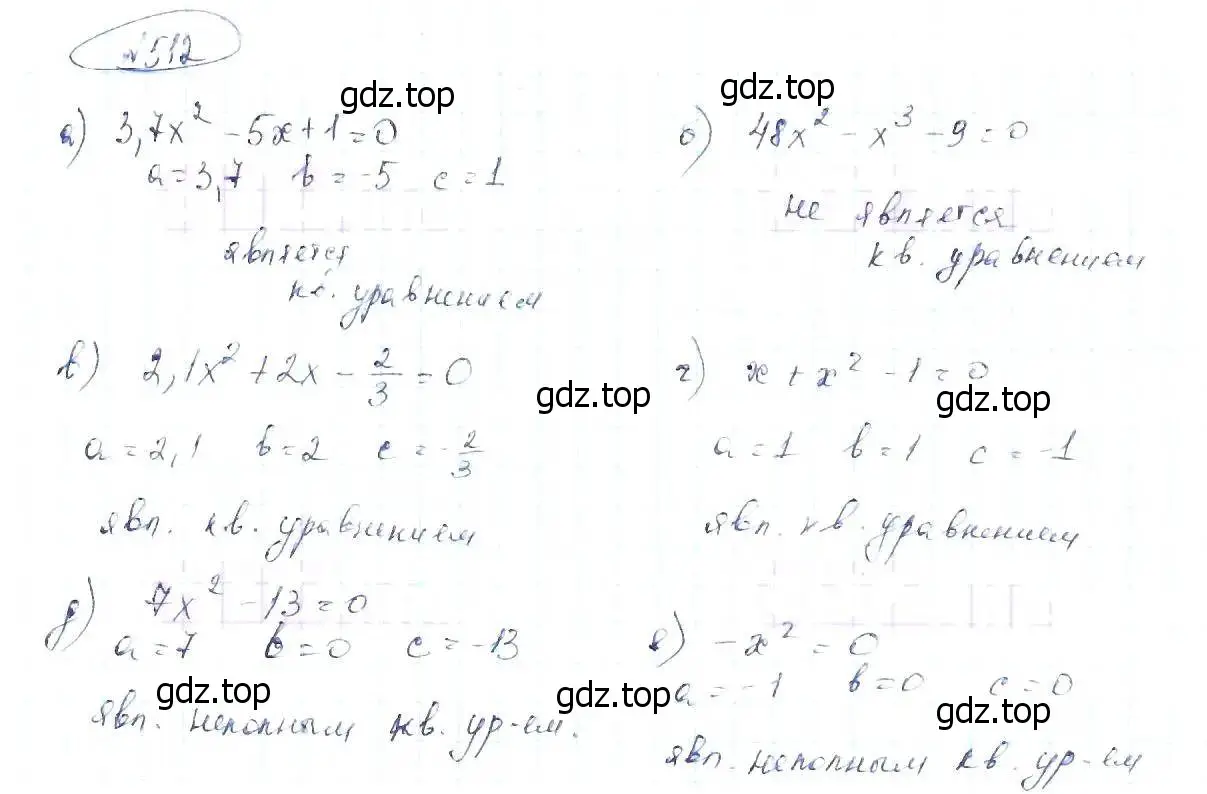 №512
а) 3,7x² - 5x + 1 = 0
a = 3,7 b = -5 c = 1
является
кв. уравнением
б) 48x² - x³ - 9 = 0
не является
кв. уравнением
в) 2,1x² + 2x - 2/3 = 0
a = 2,1 b = 2 c = -2/3
явл. кв. уравнением
г) x + x² - 1 = 0
a = 1 b = 1 c = -1
явл. кв. уравнением
д) 7x² - 13 = 0
a = 7 b = 0 c = -13
явл. неполным кв. ур-ем.
е) -x² = 0
a = -1 b = 0 c = 0
явл. неполным кв. ур-ем
gdz.top
gdz.top
gdz.top
gdz.top
gdz.top
gdz.top
gdz.top